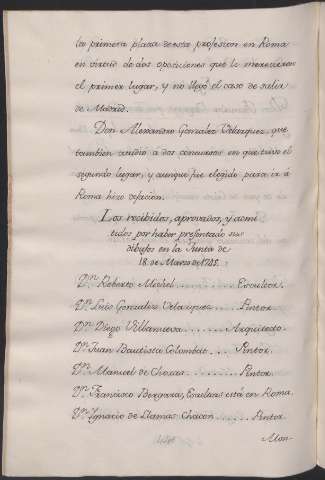 la primera plaza de esta profesion en Roma
en virtud de dos oposiciones que le merecieron
el primer lugar, y no llegó el caso de salir
de Madrid.
Don Alexandro Gonzalez Velazquez, que
tambien asistió à dos concursos en que tuvo el
segundo lugar, y aunque fue elegido para ir à
Roma hizo dejacion.
Los recibidos, aprovados, y admi
tidos por haber presentado sus
dibujos en la Junta de
18. de Marzo de 1745.
Dn. Roberto Michel ........ Escultor.
Dn. Luis Gonzalez Velazquez ..... Pintor.
Dn. Diego Villanueva ........ Arquitecto.
Dn. Juan Bautista Colombat .... Pintor.
Dn. Manuel de Chozas ........ Pintor.
Dn. Francisco Bergara, Escultor está en Roma.
Dn. Ignacio de Llamas Chacon ...... Pintor.
Alon-